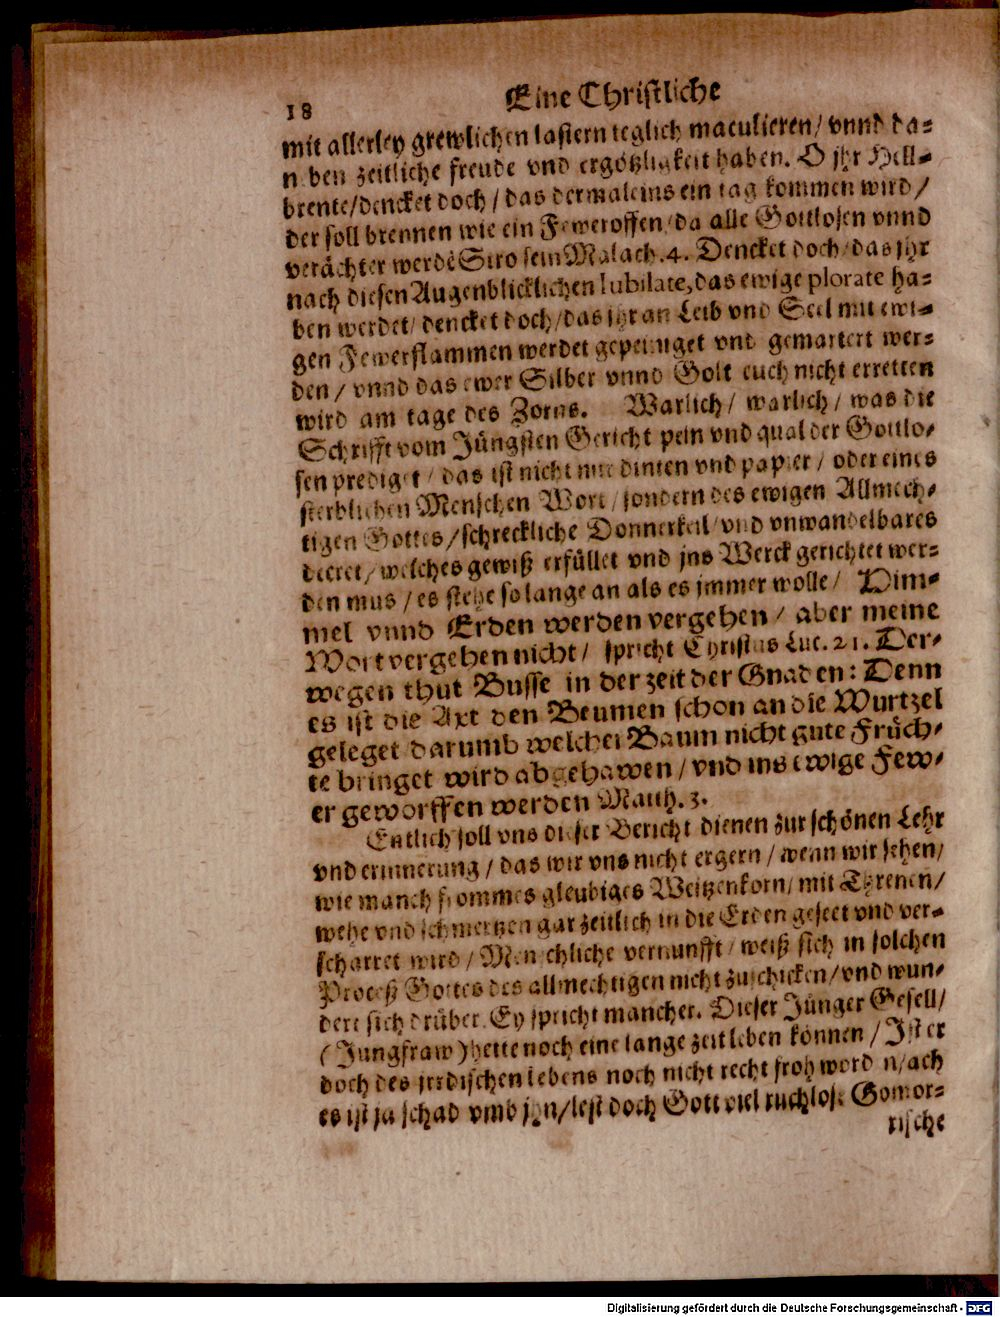 18 Eine Christliche
mit allerley grewlichen lastern teglich maculieren/ vnnd da=
neben zeitliche freude vnd ergötzligkeit haben. O jhr Hell=
brente/dencket doch/ das dermaleins ein tag kommen wird/
der soll brennen wie ein Feweroffen/da alle Gottlosen vnnd
verächter werdē Stro sein Malach.4. Dencket doch/das jhr
nach diesen Augenblicklichen Iubilate, das ewige plorate ha=
ben werdet/ dencket doch/das jhr an Leib vnd Seel mit ewi=
gen Fewerflammen werdet gepeiniget vnd gemartert wer=
den/ vnnd das ewer Silber vnnd Golt euch nicht erretten
wird am tage des Zorns. Warlich/ warlich/ was die
Schrifft vom Jüngsten Gericht pein vnd qual der Gottlo=
sen prediget/ das ist nicht mit dinten vnd papier/ oder eines
sterblichen Menschen Wort/ sondern des ewigen Allmech=
tigen Gottes/schreckliche Donnerkeil/vnd vnwandelbares
decret/ welches gewiß erfüllet vnd jns Werck gerichtet wer=
den mus/es stehe so lange an als es jmmer wolle/ Him=
mel vnnd Erden werden vergehen/ aber meine
Wort vergehen nicht/ spricht Christus Luc. 21. Der=
wegen thut Busse in der zeit der Gnaden: Denn
es ist die Axt den Beumen schon an die Wurtzel
geleget darumb welcher Baum nicht gute Früch=
te bringet wird abgehawen/vnd ins ewige Few=
er geworffen werden Matth.3.
Entlich soll vns dieser Bericht dienen zur schönen Lehr
vnd erinnerung/ das wir vns nicht ergern/ wenn wir sehen/
wie manch frommes gleubiges Weitzenkorn/ mit Threnen/
wehe vnd schmertzen gar zeitlich in die Erden geseet vnd ver=
scharret wird/ Menschliche vernunfft/ weiß sich in solchen
Proceß Gottes des allmechtigen nicht zuschicken/vnd wun=
dert sich drüber. Ey spricht mancher. Dieser Jünger Gesell/
(Jungfraw) hette noch eine lange zeit leben können/ Ist er
doch des jrrdischen lebens noch nicht recht froh worden/ach
es ist ja schad vmb jhn/lest doch Gott viel ruchlose Gomor=
rische
Digitalisierung gefördert durch die Deutsche Forschungsgemeinschaft - DFG